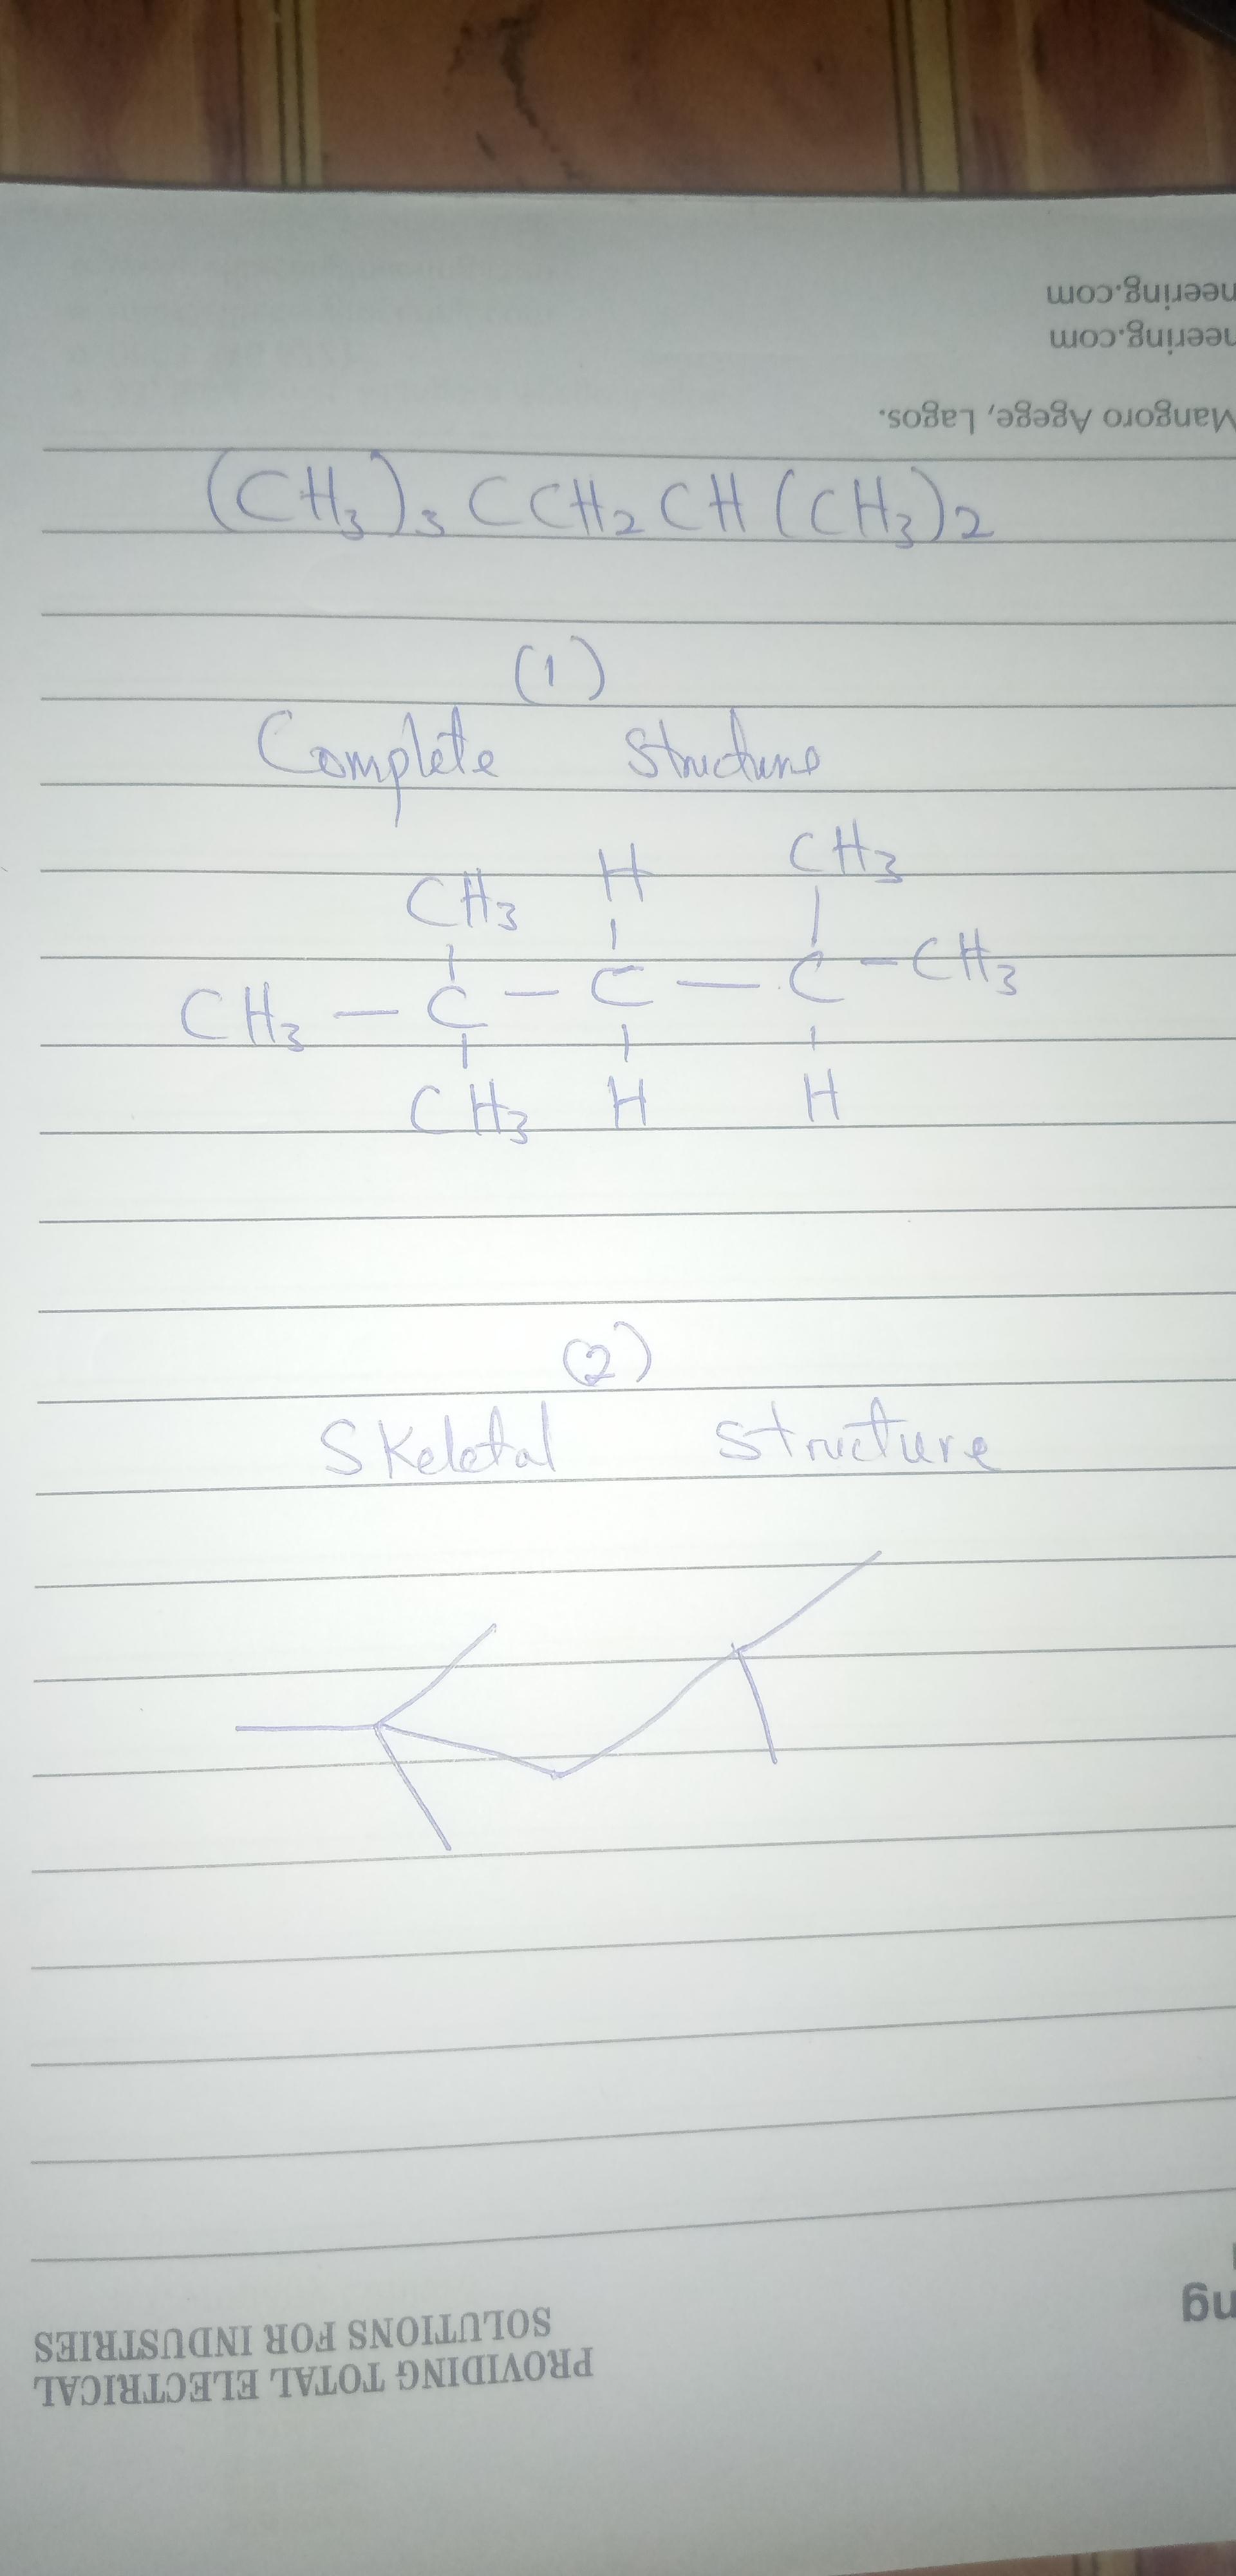 neering.com
neering.com
Mangoro Agege, Lagos.
(CH3)3 CCH2 CH (CH3)2
(1)
Complete Structure
CH3 H CH3
CH3 — C — C — C — CH3
CH3 H H
(2)
Skeletal Structure
ng
PROVIDING TOTAL ELECTRICAL
SOLUTIONS FOR INDUSTRIES